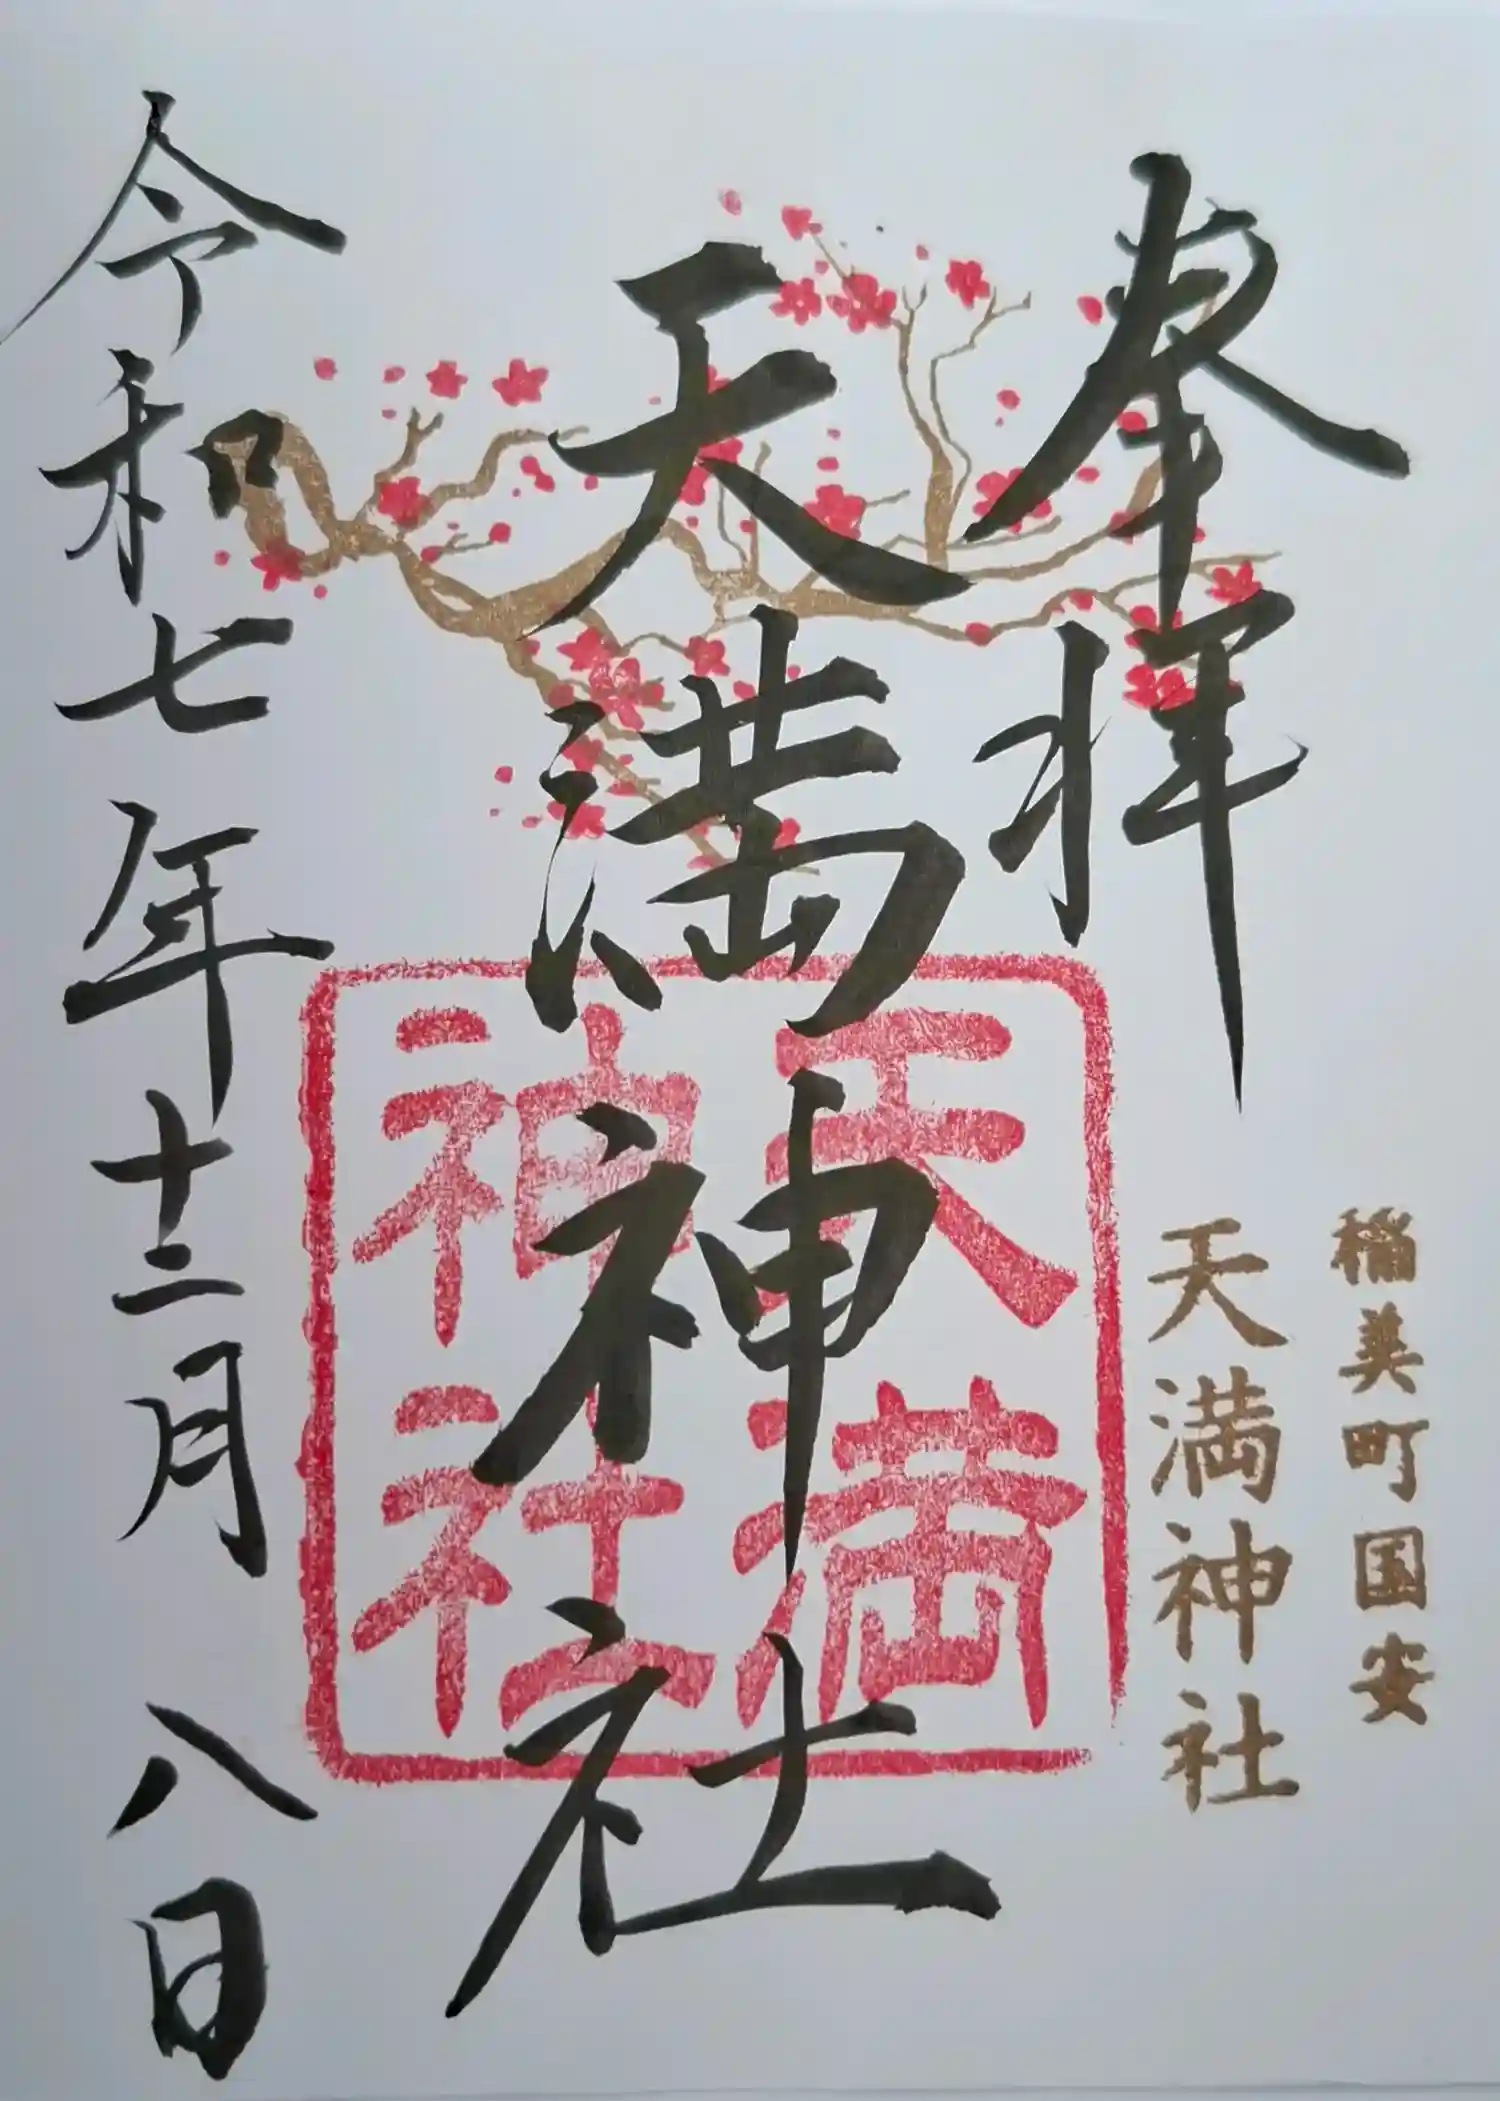 奉拝
稲美町国安
天満神社
天満神社
天満
神社
令和七年十二月八日